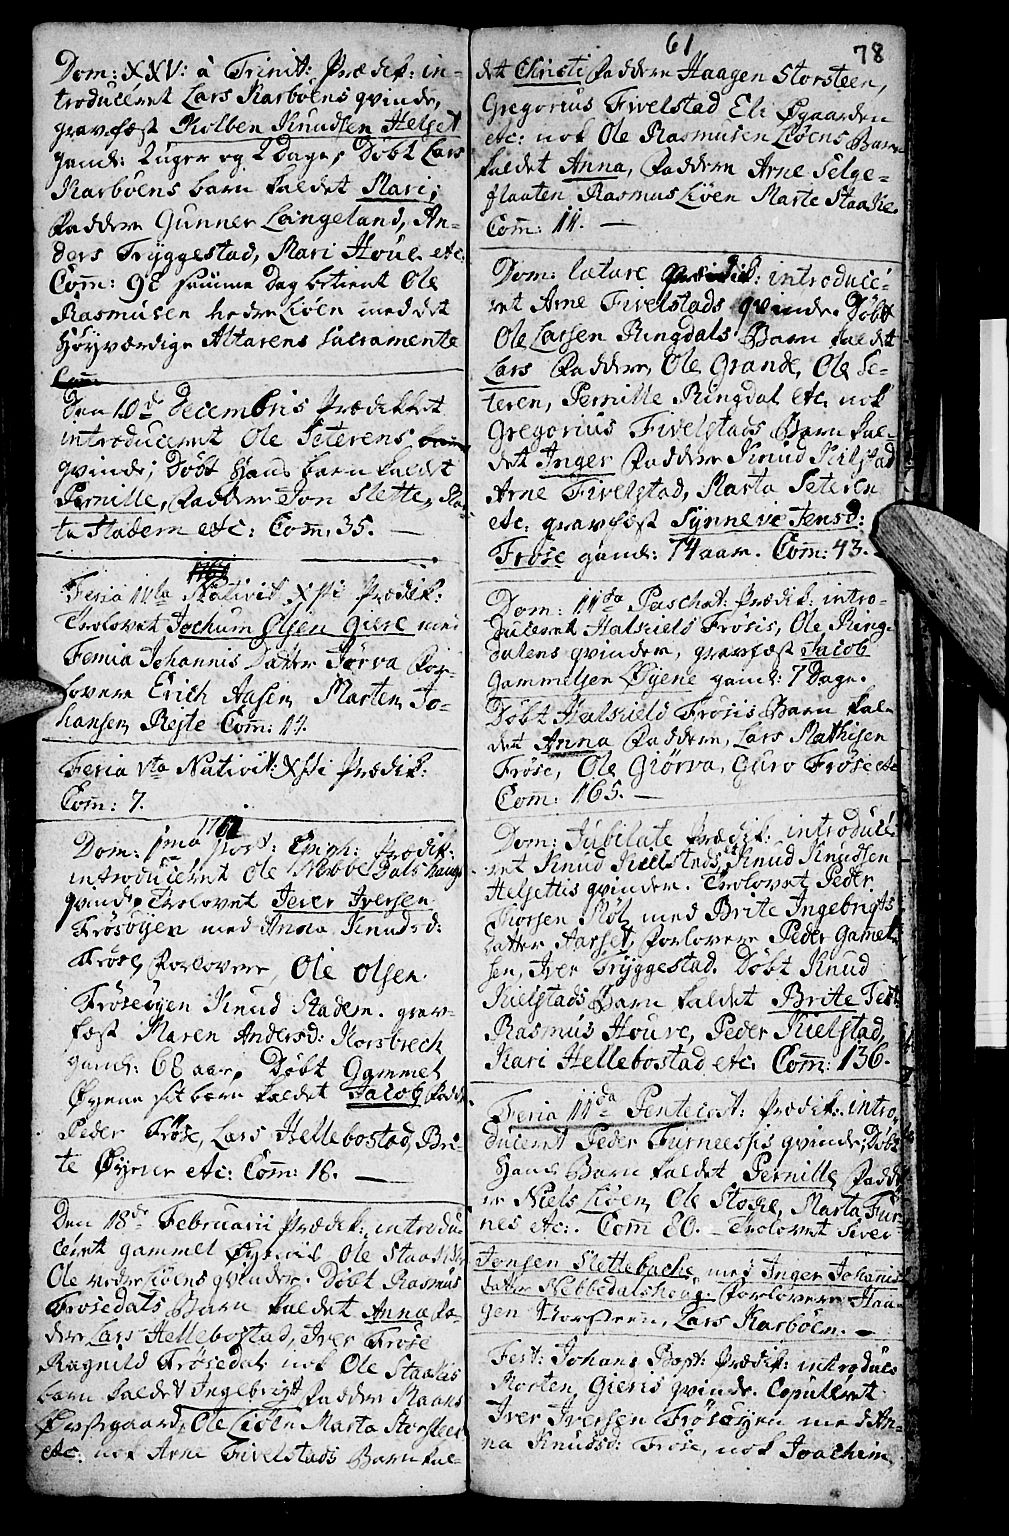 Dom: XXV: à Trinit: Prædik: in-
troduceret Lars Karböens qvinde,
gravfæst Kolben Knudsen Helset
gaml: 2 uger og 2 Dage, Döbt Lars
Karböens barn kaldet Mari;
Faddere Gunner Langeland, An-
ders Tryggestad, Mari Houe etc.
Com̄: 98 samme Dag betient Ole
Rasmusen nedre Liöen med det
Höyværdige Altarens Sacramente
Den 10de Decembris Prædikket
introduceret Ole Seterens
qvinde; Döbt Hans barn kaldet
Pernille, Faddere Jon Slette, Ma-
ta Stadem etc: Com̄: 35. —
Feria IIda Nativit. Xsti Prædik:
Trolovet Jochum Olsen Giere med
Femia Johannis Datter Jørva For-
lovere Erich Aasen, Marten Jo-
hansen Rejte Com̄: 14.
Feria Vta Nativit: Xsti Prædik:
Com̄: 7.
1761
Dom: 1ma post: Epiph: Prædik:
introduceret Ole Nebbedals haugs
qvinde, Trolovet Iver Iversen
Frösöyen med Anna Knudsd:
Fröse, Forlovere, Ole Olsen
Fröseöyen Knud Stadem. grav-
fæst Maren Andersd: Korsbrech
gaml: 68 aar, Döbt Gammel
Øyene sit barn kaldet Jacob Fadd:
Peder Fröse, Lars Hellebostad, Bri-
te Øyene etc: Com̄: 16. —
Den 18de Februarii Prædik: introdu-
ceret gammel Øyenis Ole Staaches
Ole nedre Liöens qvinder. Döbt Rasmus
Frosedals Barn kaldet Anna Fa-
dere Lars Hellebostad, Iver Fröse
Ragnild Frösedal nok Ole Staakis
barn kaldet Ingebrigt Faddere Maans
Øvstgaard, Ole Liöen Marta Storsteen
etc: nok Arne Fivelstads Barn kal-
61
78
det Christi Faddere Haagen Storsteen,
Gregorius Fivelstad Eli Øgaarden
etc: nok Ole Rasmusen Liöens Barn
kaldet Anna, Faddere Arne Selge-
flaaten Rasmus Liöen Marte Staake.
Com̄: 11. —
Dom: lætare Prædik: introduce-
ret Arne Fivelstads qvinde. Döbt
Ole Larsen Ringdals Barn kaldet
Lars Faddere Ole Grande, Ole Se-
teren, Pernille Ringdal etc. nok
Gregorius Fivelstads Barn kal-
det Inger Faddere Knud Kilstad
Arne Fivelstad, Marta Seteren
etc. gravfæst Synneve Jensd:
Fröse gaml: 74 aar. Com̄: 43. —
Dom: IIda Paschat: Prædik: intro-
duceret Halskields Frösis, Ole Ring-
dalens qvinder, gravfæst Jacob
Gammelsen Øyene gaml: 7 Dage.
Döbt Halskield Frösis Barn kal-
det Anna Faddere, Lars Mathisen
Fröse, Ole Giörva, Guro Fröse etc
Com̄: 165. —
Dom: Jubilate Prædik: introduce-
ret Knud Kielstads, Knud Knudsen
Helsettis qvinder. Trolovet Peder
Korsen Röt med Brite Ingebrigts
Datter Aarset, Forlovere Peder Gamel-
sen, Iver Tryggestad. Döbt Knud
Kielstads Barn kaldet Brite Test:
Rasmus Houve, Peder Kielstad,
Kari Hellebostad etc: Com̄: 136.
Feria IIda Pentecost: Prædik: intro-
duceret Peder Furneessis qvinde; Döbt
Hans Barn kaldet Pernille Fadde-
re Niels Liöen, Ole Stoche, Marta Fur-
nes etc:. Com̄ 80. — Trolovet Siver
Jonsen Slettebache, med Inger Johanis
Datter Nebbedalshoug. Forlovere Haa-
gen Storsteen, Lars Karböen. —
Fest: Johans Bapt: Prædik: introduc
Morten Gieris qvinde. Copuleret
Iver Iversen Frösöyen med An-
na Knudsd: Frose, nok Joachim